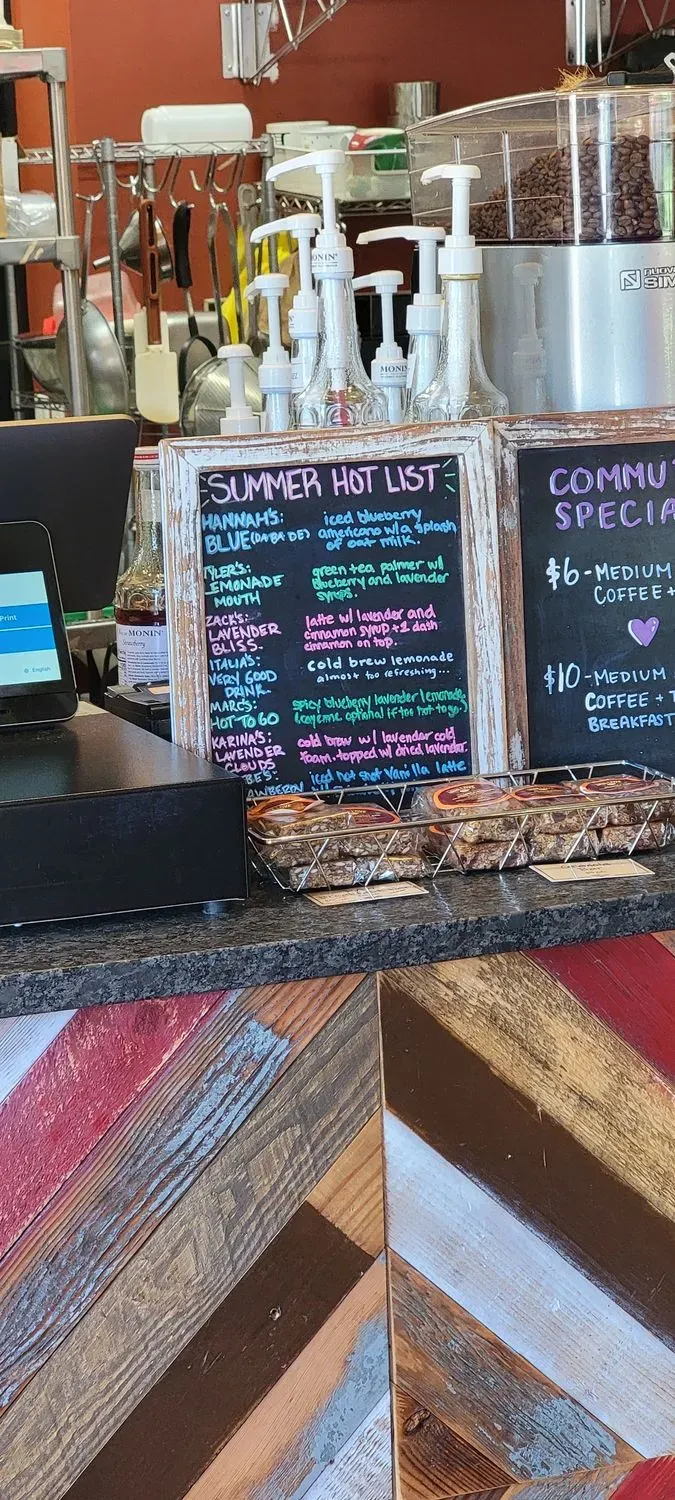 MONIN
MONIN
NUOVA
SIM
SUMMER HOT LIST
HANNAH'S:
BLUE (DA BA DE)
iced blueberry
americano w/ a splash
of oat milk.
TYLER'S:
LEMONADE
MOUTH
green tea palmer w/
blueberry and lavender
syrups.
ZACK'S:
LAVENDER
BLISS.
latte w/ lavender and
cinnamon syrup + 2 dash
cinnamon on top.
ITALIA'S:
VERY GOOD
DRINK.
cold brew lemonade
almost too refreshing...
MARC'S:
HOT-TO GO
spicy blueberry lavender lemonade
(cayenne optional if too hot-to-go).
KARINA'S:
LAVENDER
CLOUDS
cold brew w/ lavender cold
foam. topped w/ dried lavender.
BE'S:
AWBERRY
iced hot shot vanilla latte
COMMU
SPECIA
$6 - MEDIUM
COFFEE +
$10 - MEDIUM
COFFEE + T
BREAKFAST
Print
English
MONIN
Strawberry